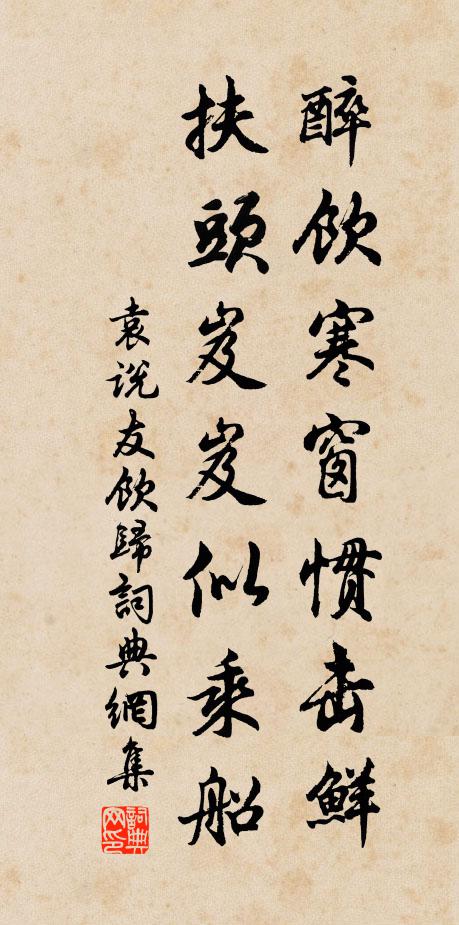 醉飲寒窗慣击鮮
扶頭岌岌似乘船
袁説友飲歸詞典網集
詞典网印